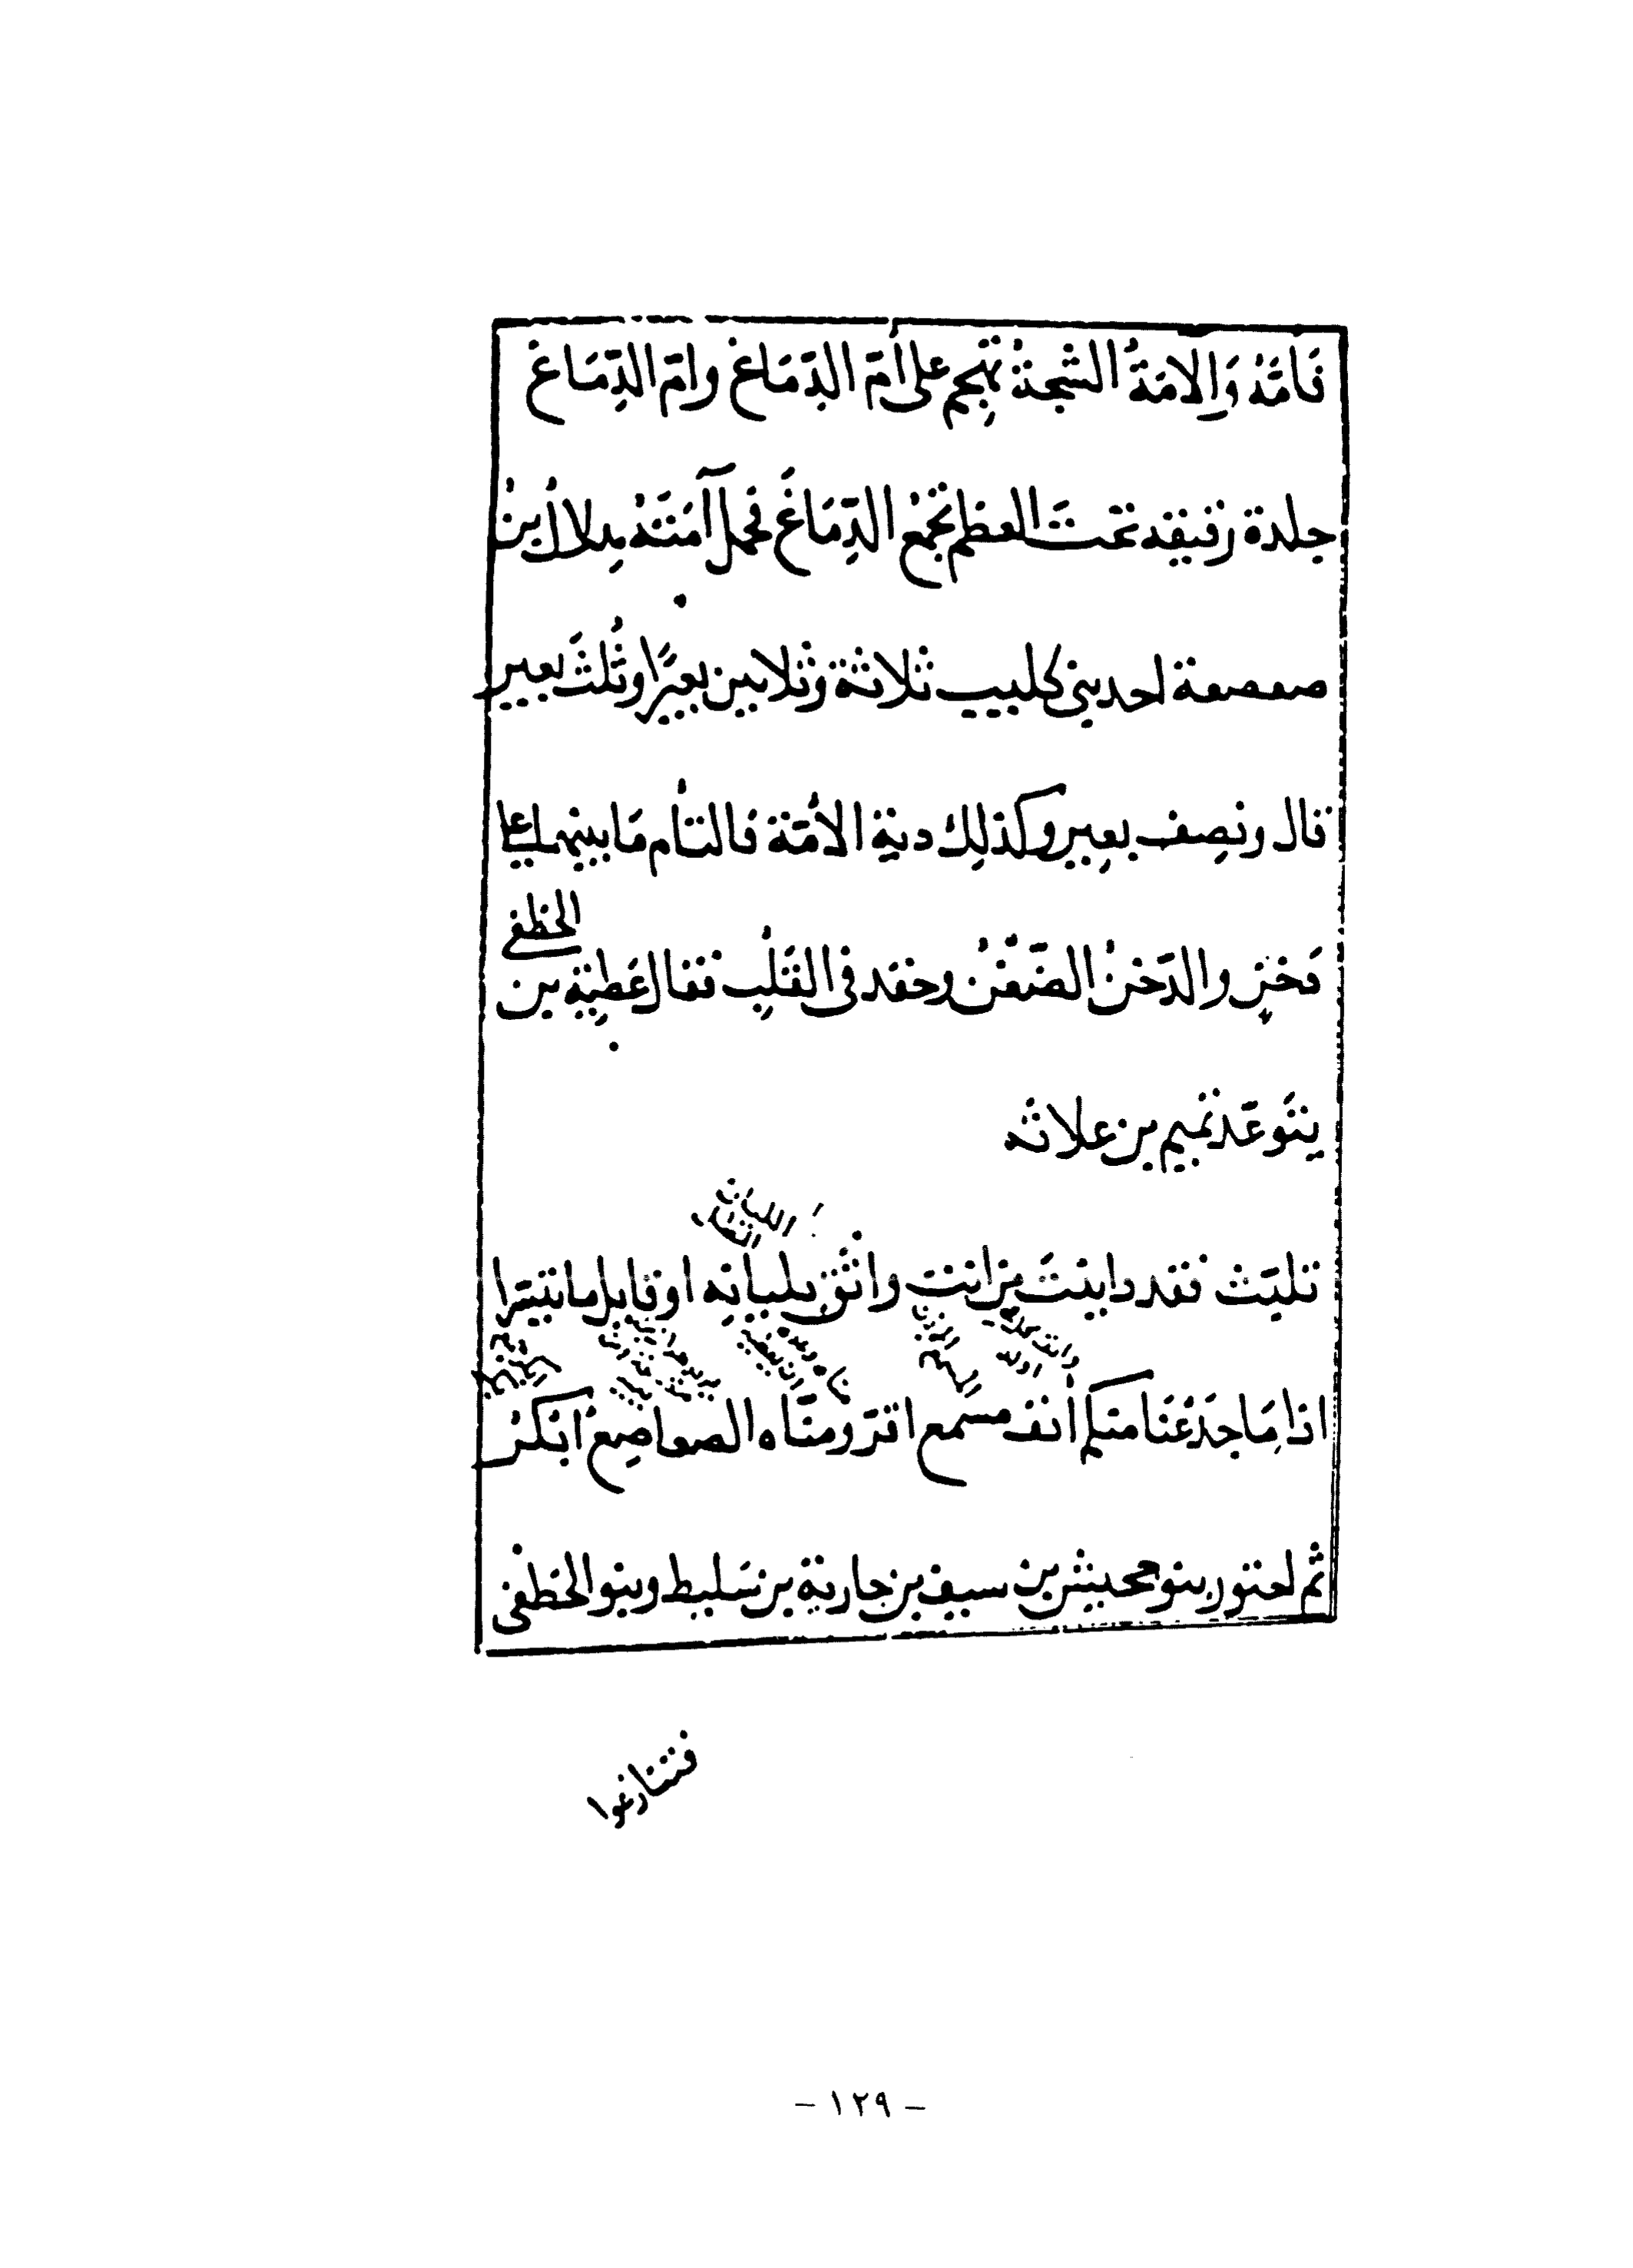 فَأَمَّهُ وَالآمَّةُ الشَّجَّةُ تهجم على أُمّ الدِّمَاغ وامّ الدِّمَاغ
جلدة رقيقه تحتَ العظم تجمَعُ الدِّمَاغَ فحمل آمَّتَهُ بِدلالُ ابنُ
صعصعة احد بنى كليب ثلاثة وثلاثين بعيرًا وثُلثَ بعير
قال ونِصف بعِير وكذلِك دية الأمّة فالتأم ما بينهما على
دَخَنٍ والدّخنُ الضّغْنُ وحقد فى القَلْبِ فقال عَطِيّة بن
الخطفى
يتَوعّد تميم بن علاثه
تلبّث فقد داينتَ من انت واثقٌ بِلَيانِه او قابل ما تيسّرا
اذا مَا جَدَعْنَا منكم أنف مسمع اقرّ ومنّاه الصعاصِعُ ابكرُ
ثم احتور بنو جحيش بن سيف بن جارية بن سَليط وبنو الخَطَفى
فتنازعوا
- ١٢٩ -